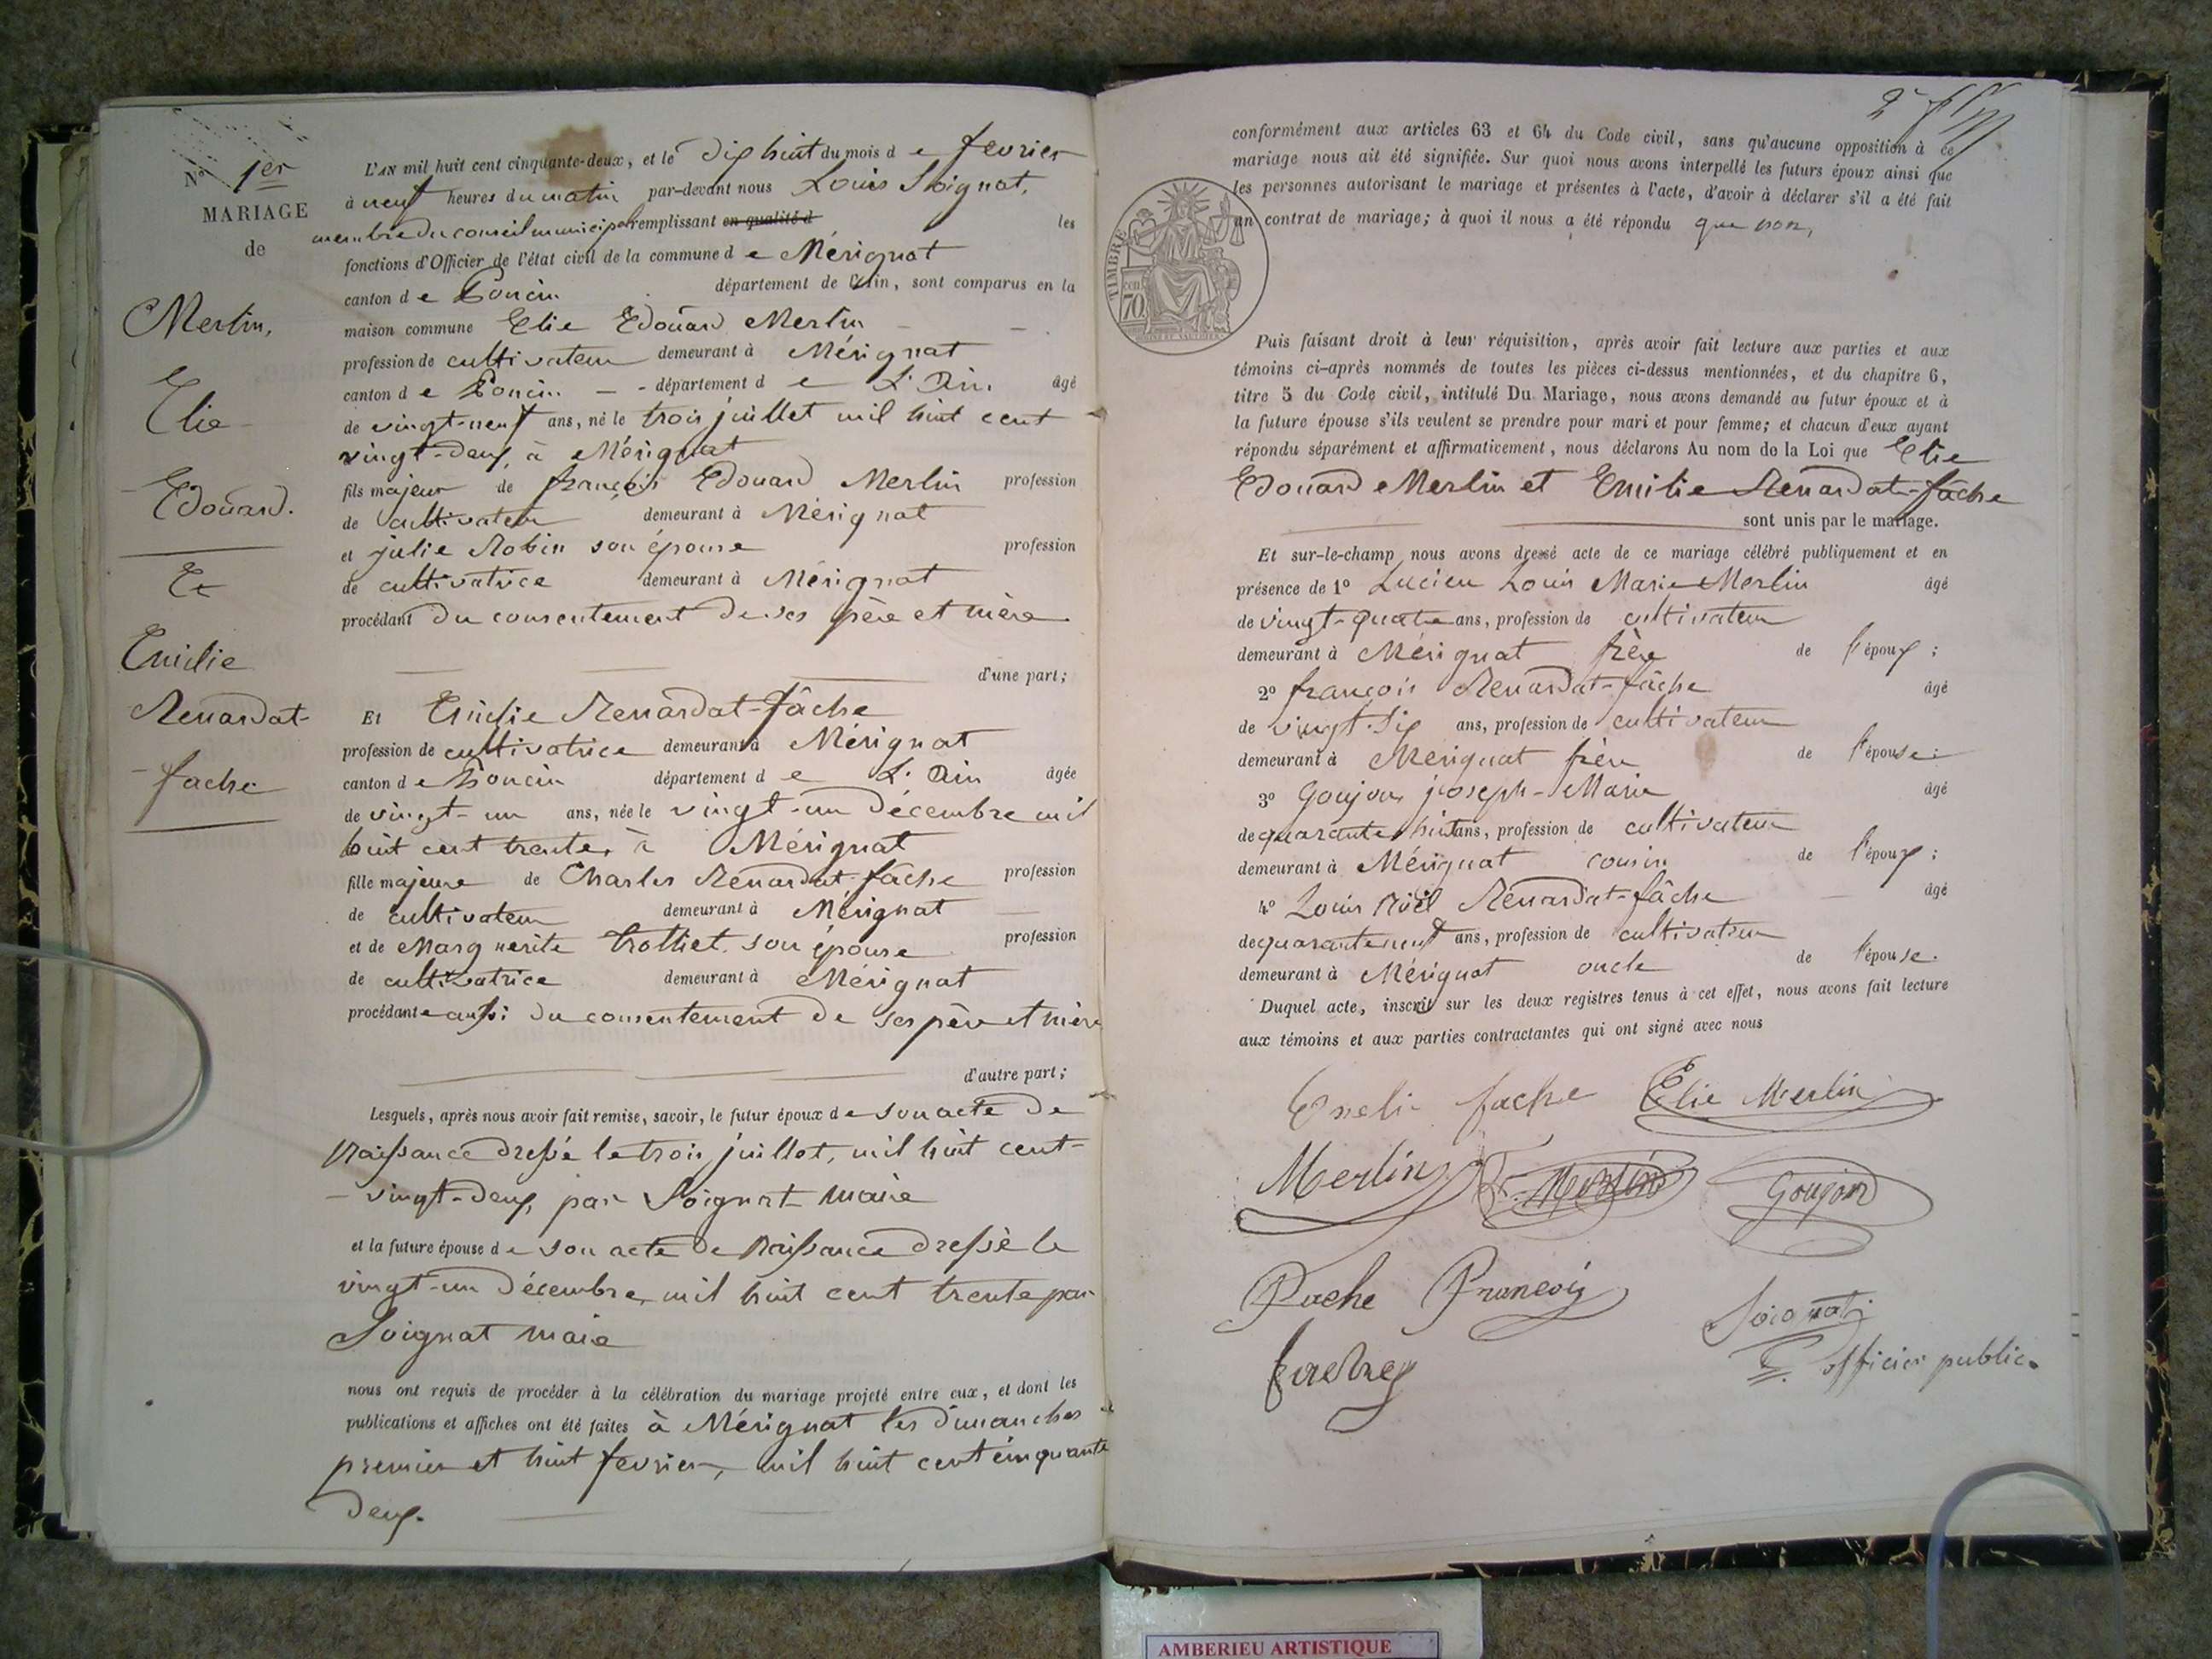 N° 1er
MARIAGE
de
Merlin,
Elie
Edouard.
Et
Emilie
Renardat-
fache
L'AN mil huit cent cinquante-deux, et le dix huit du mois de fevrier
à neuf heures du matin par-devant nous Louis Soignat,
membre du conseil municipal remplissant en qualité d les
fonctions d'Officier de l'état civil de la commune de Mérignat
canton de Poncin département de l'Ain, sont comparus en la
maison commune Elie Edouard Merlin
profession de cultivateur demeurant à Mérignat
canton de Poncin département de L'Ain. âgé
de vingt-neuf ans, né le trois juillet mil huit cent
vingt-deux, à Mérignat
fils majeur de françois Edouard Merlin profession
de cultivateur demeurant à Mérignat
et julie Robin son épouse profession
de cultivatrice demeurant à Mérignat
procédant du consentement de ses père et mère
d'une part;
Et Emilie Renardat-fâche
profession de cultivatrice demeurant à Mérignat
canton de Poncin département de L'Ain âgée
de vingt-un ans, née le vingt-un décembre mil
huit cent trente, à Mérignat
fille majeure de Charles Renardat-fâche profession
de cultivateur demeurant à Mérignat
et de Marguerite Trolliet son épouse profession
de cultivatrice demeurant à Mérignat
procédante aussi du consentement de ses père et mère
d'autre part;
Lesquels, après nous avoir fait remise, savoir, le futur époux de son acte de
Naissance dressé le trois juillet, mil huit cent-
vingt-deux, par Soignat maire
et la future épouse de son acte de Naissance dressé le
vingt-un décembre mil huit cent trente par
Soignat maire
nous ont requis de procéder à la célébration du mariage projeté entre eux, et dont les
publications et affiches ont été faites à Mérignat les dimanches
premier et huit fevrier, mil huit cent cinquante
deux.
conformément aux articles 63 et 64 du Code civil, sans qu'aucune opposition à ce
mariage nous ait été signifiée. Sur quoi nous avons interpellé les futurs époux ainsi que
les personnes autorisant le mariage et présentes à l'acte, d'avoir à déclarer s'il a été fait
un contrat de mariage; à quoi il nous a été répondu que non,
TIMBRE
70
Puis faisant droit à leur réquisition, après avoir fait lecture aux parties et aux
témoins ci-après nommés de toutes les pièces ci-dessus mentionnées, et du chapitre 6,
titre 5 du Code civil, intitulé Du Mariage, nous avons demandé au futur époux et à
la future épouse s'ils veulent se prendre pour mari et pour femme; et chacun d'eux ayant
répondu séparément et affirmativement, nous déclarons Au nom de la Loi que Elie
Edouard Merlin et Emilie Renardat-fâche
sont unis par le mariage.
Et sur-le-champ nous avons dressé acte de ce mariage célébré publiquement et en
présence de 1° Lucien Louis Marie Merlin âgé
de vingt-quatre ans, profession de cultivateur
demeurant à Mérignat frère de l'époux;
2° françois Renardat-fâche âgé
de vingt-six ans, profession de cultivateur
demeurant à Mérignat frère de l'épouse;
3° Goujon joseph-Marie âgé
de quarante huit ans, profession de cultivateur
demeurant à Mérignat cousin de l'époux;
4° Louis Noël Renardat-fâche âgé
de quarante neuf ans, profession de cultivateur
demeurant à Mérignat oncle de l'épouse.
Duquel acte, inscrit sur les deux registres tenus à cet effet, nous avons fait lecture
aux témoins et aux parties contractantes qui ont signé avec nous
fache Elie Merlin
Merlin Merlin Goujon
Fache Francois
Soignat
officier public.
AMBERIEU ARTISTIQUE